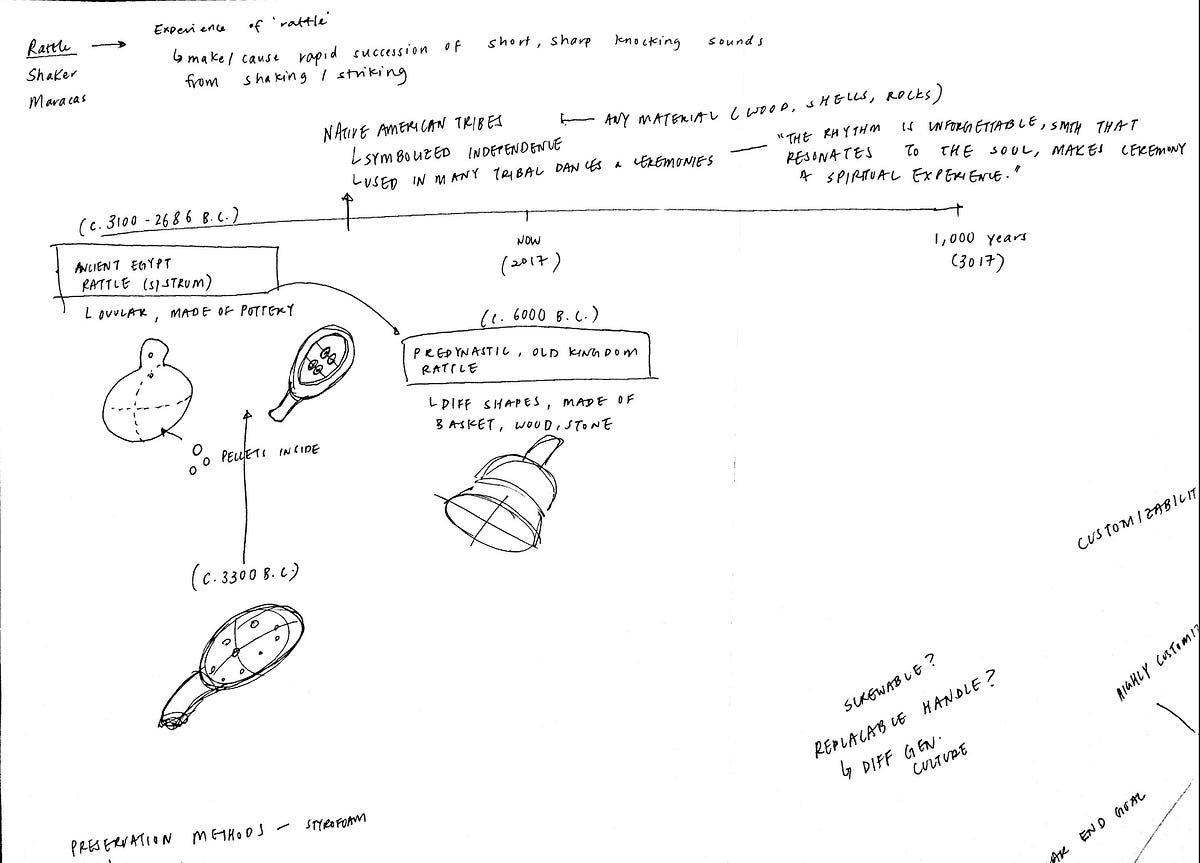 Rattle → Experience of 'rattle'
Shaker
Maracas
↳ make/cause rapid succession of short, sharp knocking sounds
from shaking / striking
NATIVE AMERICAN TRIBES ← ANY MATERIAL (WOOD, SHELLS, ROCKS)
└ SYMBOLIZED INDEPENDENCE
└ USED IN MANY TRIBAL DANCES & CEREMONIES —
"THE RHYTHM IS UNFORGETTABLE, SMTH THAT
RESONATES TO THE SOUL, MAKES CEREMONY
A SPIRITUAL EXPERIENCE."
(c. 3100 - 2686 B.C.)
NOW
(2017)
1,000 years
(3017)
ANCIENT EGYPT
RATTLE (SISTRUM)
└ OVULAR, MADE OF POTTERY
PELLETS INSIDE
(c. 6000 B.C.)
PREDYNASTIC, OLD KINGDOM
RATTLE
└ DIFF SHAPES, MADE OF
BASKET, WOOD, STONE
(c. 3300 B.C.)
CUSTOMIZABILIT
HIGHLY CUSTOMIZ
SCREWABLE?
REPLACABLE HANDLE?
↳ DIFF GEN.
CULTURE
AR END GOAL
PRESERVATION METHODS — STYROFOAM